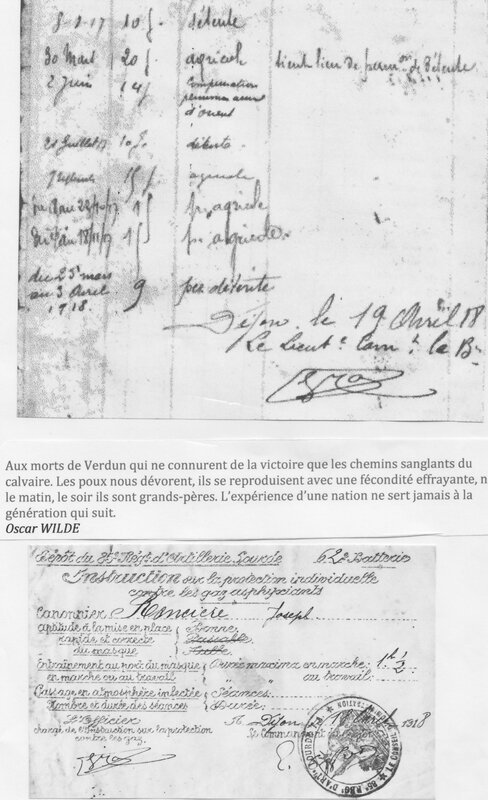 8-1-17 10 j détente
30 Mars 20 j agricole tient lieu de perm de détente
2 Juin 14 j Compensation
d'orient
21 Juillet 17 10 j détente
7 Septembre 15 j agricole
1 j p. agricole
18/11/17 1 j p. agricole.
du 25 mars
au 3 Avril 9 per. détente
1918.
Dijon le 19 Avril 18
Le Lieut. Com. la B
Aux morts de Verdun qui ne connurent de la victoire que les chemins sanglants du
calvaire. Les poux nous dévorent, ils se reproduisent avec une fécondité effrayante, n
le matin, le soir ils sont grands-pères. L'expérience d'une nation ne sert jamais à la
génération qui suit.
Oscar WILDE
Dépôt du 85e Régt. d'Artillerie Lourde 62e Batterie
Instruction sur la protection individuelle
contre les gaz asphyxiants
Canonnier Joseph
aptitude à la mise en place Bonne
rapide et correcte Passable
du masque Faible
Entraînement au port du masque Durée maxima en marche: 1h 1/2
en marche ou au travail au travail:
Passage en atmosphère infectée Séances:
Nombre et durée des séances Durée:
L'Officier A Dijon le 19 Avril 1918
chargé de l'Instruction sur la protection Le Commandant
contre les gaz.